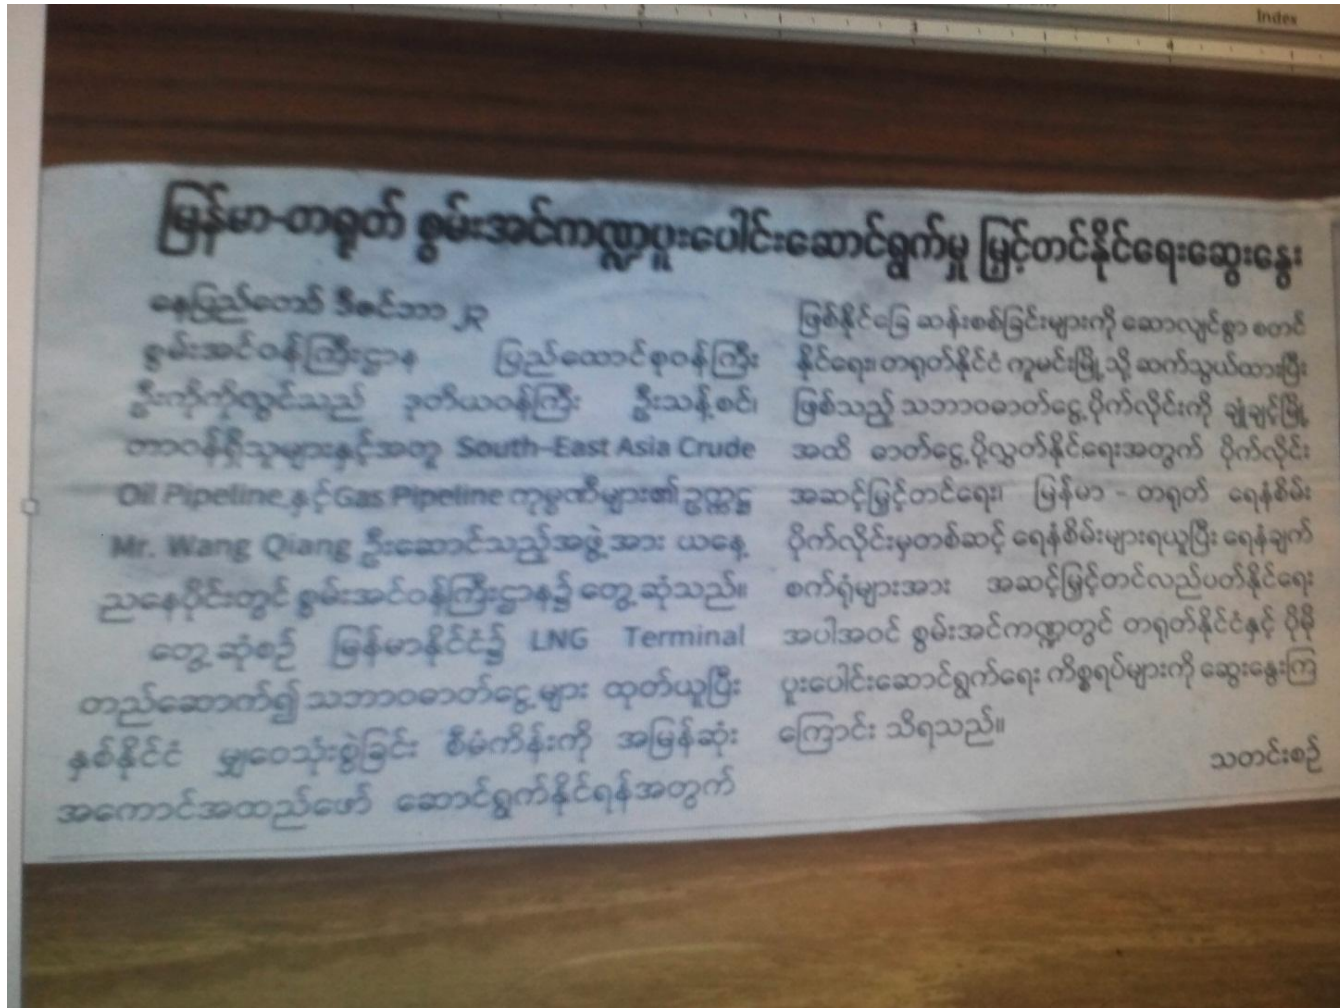 Index
2
3
4
မြန်မာ-တရုတ် စွမ်းအင်ကဏ္ဍပူးပေါင်းဆောင်ရွက်မှု မြှင့်တင်နိုင်ရေးဆွေးနွေး
နေပြည်တော် ဒီဇင်ဘာ ၂၃
စွမ်းအင်ဝန်ကြီးဌာန ပြည်ထောင်စုဝန်ကြီး
ဦးကိုကိုလွင်သည် ဒုတိယဝန်ကြီး ဦးသန့်စင်၊
တာဝန်ရှိသူများနှင့်အတူ South-East Asia Crude
Oil Pipeline နှင့် Gas Pipeline ကုမ္ပဏီများ၏ ဥက္ကဋ္ဌ
Mr. Wang Qiang ဦးဆောင်သည့်အဖွဲ့အား ယနေ့
ညနေပိုင်းတွင် စွမ်းအင်ဝန်ကြီးဌာန၌ တွေ့ဆုံသည်။
တွေ့ဆုံစဉ် မြန်မာနိုင်ငံ၌ LNG Terminal
တည်ဆောက်၍ သဘာဝဓာတ်ငွေ့များ ထုတ်ယူပြီး
နှစ်နိုင်ငံ မျှဝေသုံးစွဲခြင်း စီမံကိန်းကို အမြန်ဆုံး
အကောင်အထည်ဖော် ဆောင်ရွက်နိုင်ရန်အတွက်
ဖြစ်နိုင်ခြေ ဆန်းစစ်ခြင်းများကို ဆောလျင်စွာ စတင်
နိုင်ရေး၊ တရုတ်နိုင်ငံ ကူမင်းမြို့သို့ ဆက်သွယ်ထားပြီး
ဖြစ်သည့် သဘာဝဓာတ်ငွေ့ပိုက်လိုင်းကို ချုံချင့်မြို့
အထိ ဓာတ်ငွေ့ပို့လွှတ်နိုင်ရေးအတွက် ပိုက်လိုင်း
အဆင့်မြှင့်တင်ရေး၊ မြန်မာ - တရုတ် ရေနံစိမ်း
ပိုက်လိုင်းမှတစ်ဆင့် ရေနံစိမ်းများရယူပြီး ရေနံချက်
စက်ရုံများအား အဆင့်မြှင့်တင်လည်ပတ်နိုင်ရေး
အပါအဝင် စွမ်းအင်ကဏ္ဍတွင် တရုတ်နိုင်ငံနှင့် ပိုမို
ပူးပေါင်းဆောင်ရွက်ရေး ကိစ္စရပ်များကို ဆွေးနွေးကြ
ကြောင်း သိရသည်။
သတင်းစဉ်